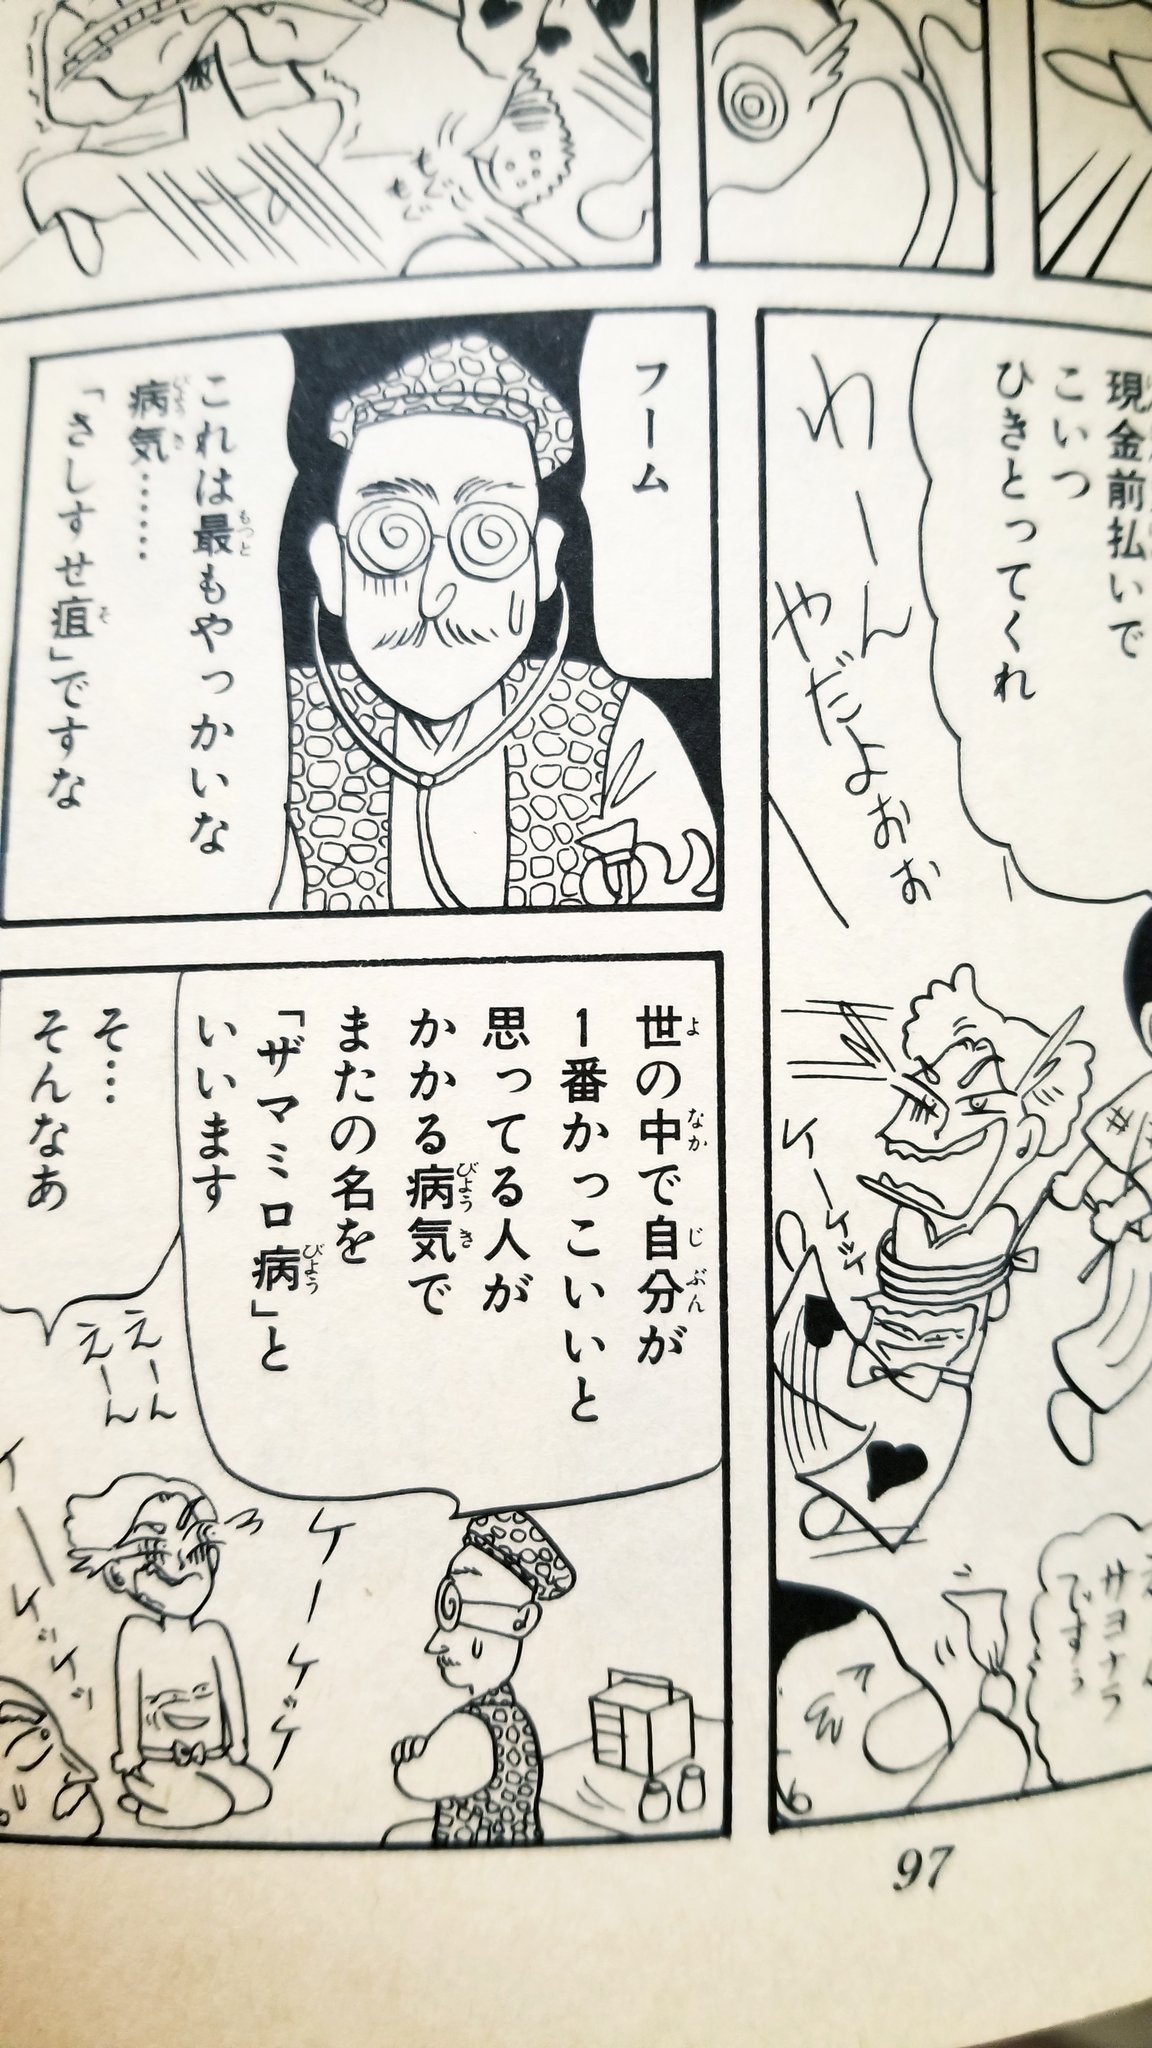 もぐ
もぐ
現金前払いで
こいつ
ひきとってくれ
わーん
やだよぉぉぉ
ケーケッ
サヨナラ
ですぅ
フーム
これは最もやっかいな
病気……
「さしすせ疽」ですな
世の中で自分が
1番かっこいいと
思ってる人が
かかる病気で
またの名を
「ザマミロ病」と
いいます
そ…
そんなあ
えーん
えーん
ケーケケケ
97